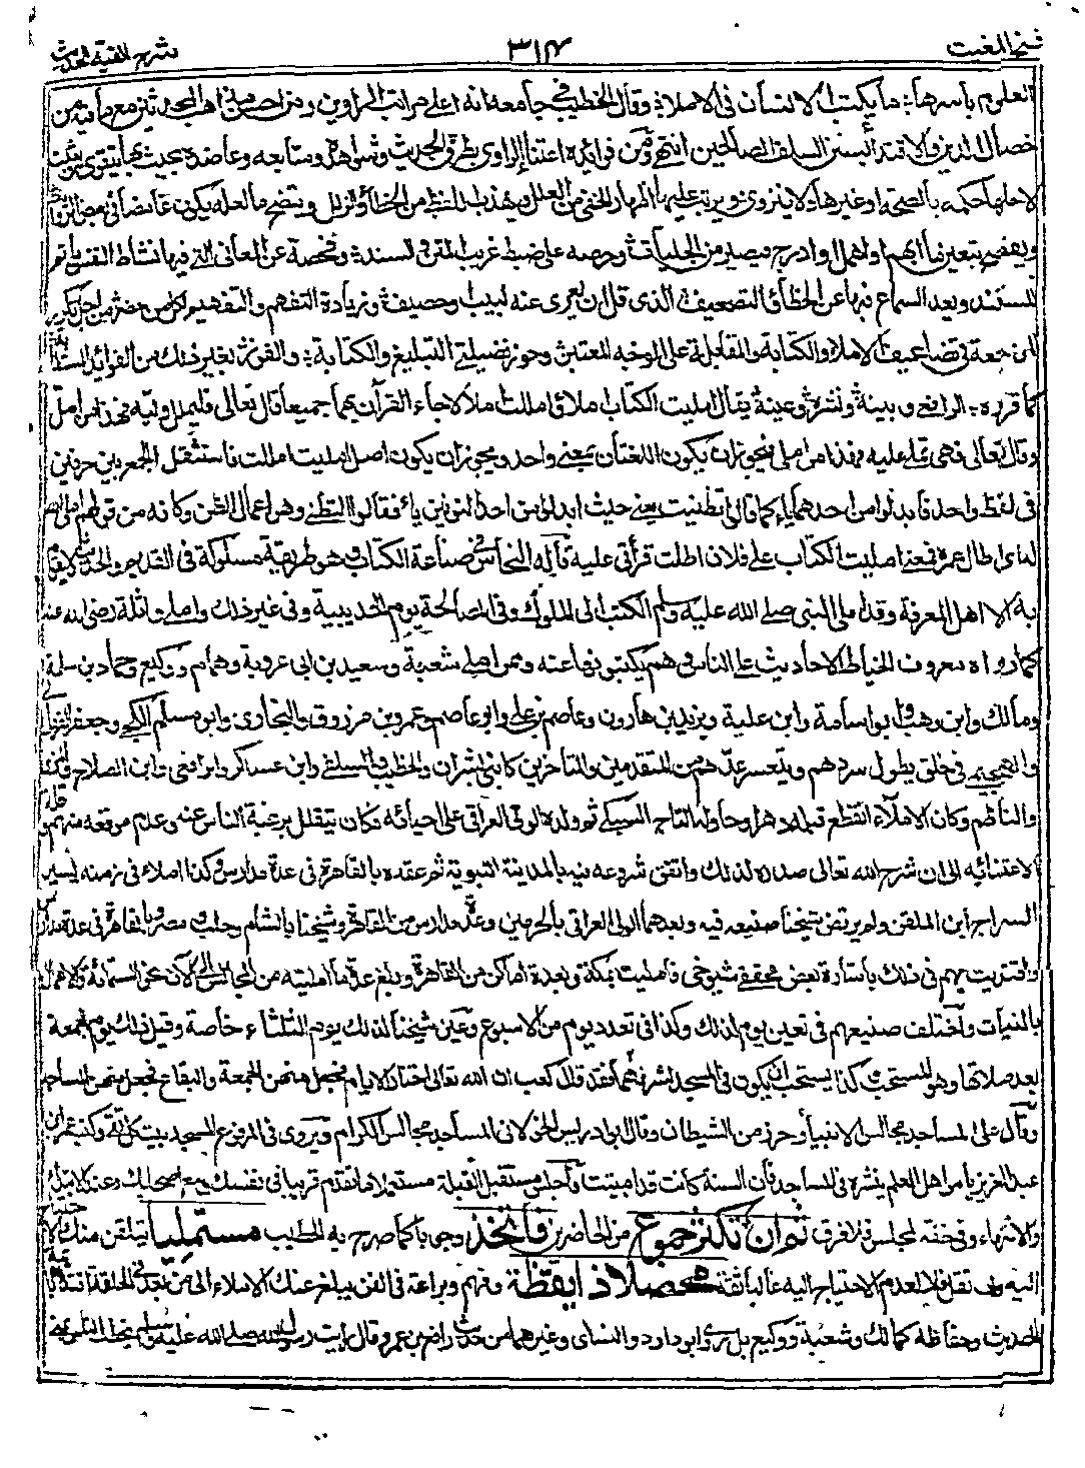 فتح المغيث ٣١٤ شرح الفية الحديث
العلوم باسرها ما يكتب الانسان في الاملاء وقال الخطيب في جامعه انه اعلى مراتب الراوين ومن احسن مذاهب المحدثين مع ما فيه من
جمال الدين والاقتداء بسنن السلف الصالحين انتهى ومن فوائده اعتناء الراوي بطرق الحديث وشواهده ومتابعه وعاضده بحيث بها يتقوى
لاجلها حكمه بالصحة او غيرها ولا يتروى ويرتب عليها اظهار الخفي من العلل ويهذب اللفظ من الخطأ والزلل ويتضح ما لعله يكون غامضا في بعض
ويفصح بتعيين ما ابهم او اهمل او ادرج فيصير من الجليات وحرصه على ضبط غريب المتن والسند وفحصه عن المعاني التي فيها نشاط النفس
للمستفيد وبعد السماع فيها عن الخطأ والتصحيف الذي قل ان يعرى عنه لبيب وحصيف وزيادة التفهم والتفهيم لكل من حضر من اجل تكرير
المراجعة في تضاعيف الاملاء والكتابة والمقابلة على الوجه المعتبر وحوز فضيلتي التبليغ والكتابة والفوز بغير ذلك من الفوائد
كما قرره الرافعي وبينه ونشره وعينه يقال امليت الكتاب املاء وامللت املالا جاء القرآن بهما جميعا قال تعالى فليملل وليه فهذا من امل
وقال تعالى فهي تملى عليه فهذا من املى فيجوز ان يكون اللغتان بمعنى واحد ويجوز ان يكون اصل امليت امللت فاستثقل الجمع بين حرفين
في لفظ واحد فابدلوا من احدهما ياء كما قالوا تظنيت يعني حيث ابدلوا من احد النونين ياء فقالوا التظني وهو اعمال الظن وكانه من قولهم املى الله
له اي اطال عمره فمعنى امليت الكتاب على فلان اطلت قراءتي عليه قاله النحاس في صناعة الكتاب وهو طريقة مسلوكة في القديم والحديث لا يقوم
به الا اهل المعرفة وقد املى النبي صلى الله عليه وسلم الكتب الى الملوك وفي المصالحة يوم الحديبية وفي غير ذلك واملى واثلة رضي الله عنه
كما رواه معروف الخياط الاحاديث على الناس وهم يكتبونها عنه وممن املى شعبة وسعيد بن ابي عروبة وهمام ووكيع وحماد بن سلمة
ومالك وابن وهب وابو اسامة وابن علية ويزيد بن هارون وعاصم بن علي وابو عاصم وعمرو بن مرزوق والبخاري وابو مسلم الكجي وجعفر الفريابي
والهجيمي في خلق يطول سردهم ويتعسر عدهم من المتقدمين والمتأخرين كابن بشران والخطيب والسلفي وابن عساكر والرافعي وابن الصلاح والمزي
والناظم وكان الاملاء انقطع قبله دهرا وحاوله التاج السبكي ثم ولده الولي العراقي على احيائه فكان يتعلل برغبة الناس عنه وعدم موقعه منهم وقلة
الاعتناء به الى ان شرح الله تعالى صدره لذلك واتفق شروعه فيه بالمدينة النبوية ثم عقده بالقاهرة في عدة مدارس وكذا املاء في زمنه يسير
السراج ابن الملقن ولم يرتض شيخنا صنيعه فيه وبعدهما الولي العراقي بالحرمين وعدة مدارس من القاهرة وشيخنا بالشام وحلب ومصر والقاهرة في عدة مدارس
واقتديت بهم في ذلك باشارة بعض محققي شيوخي فامليت بمكة وبعدة اماكن من القاهرة وبلغ عدة ما امليته من المجالس الى الآن نحو الستمائة والاعمال
بالنيات واختلف صنيعهم في تعيين يوم لذلك وكذا في تعدد يوم من الاسبوع وعين شيخنا لذلك يوم الثلثاء خاصة وقبل ذلك يوم الجمعة
بعد صلاتها وهو المستحب كذا يستحب ان يكون في المسجد لشرفهما فقد قال كعب ان الله تعالى اختار الايام فجعل منهن الجمعة والبقاع فجعل منهن المساجد
وقال علي المساجد مجالس الانبياء وحرز من الشيطان وقال ابو ادريس الخولاني المساجد مجالس الكرام ويروى في المرفوع المسجد بيت كل تقي وكتب عمر ابن
عبد العزيز يأمر اهل العلم بنشره في المساجد فان السنة كانت قد اميتت واجلس مستقبل القبلة مستعملا ما تقدم قريبا في نفسك مع اصحابك وعند الابتداء
والانتهاء وفي خفة المجلس فلا فرق ثم ان تكثر جموع من الحاضرين فاتخذ وجوبا كما صرح به الخطيب مستمليا يتلقن منك
اليه وان تقل فلا لعدم الاحتياج اليه غالبا ثقة محصلا ذا يقظة وفهم وبراعة في الفن يبلغ عنك الاملاء الى من بعد في الحلقة اقتداء بائمة
الحديث وحفاظه كمالك وشعبة ووكيع بل روى ابو داود والنسائي وغيرهما من حديث رافع بن عمرو قال رأيت رسول الله صلى الله عليه وسلم يخطب الناس بمنى